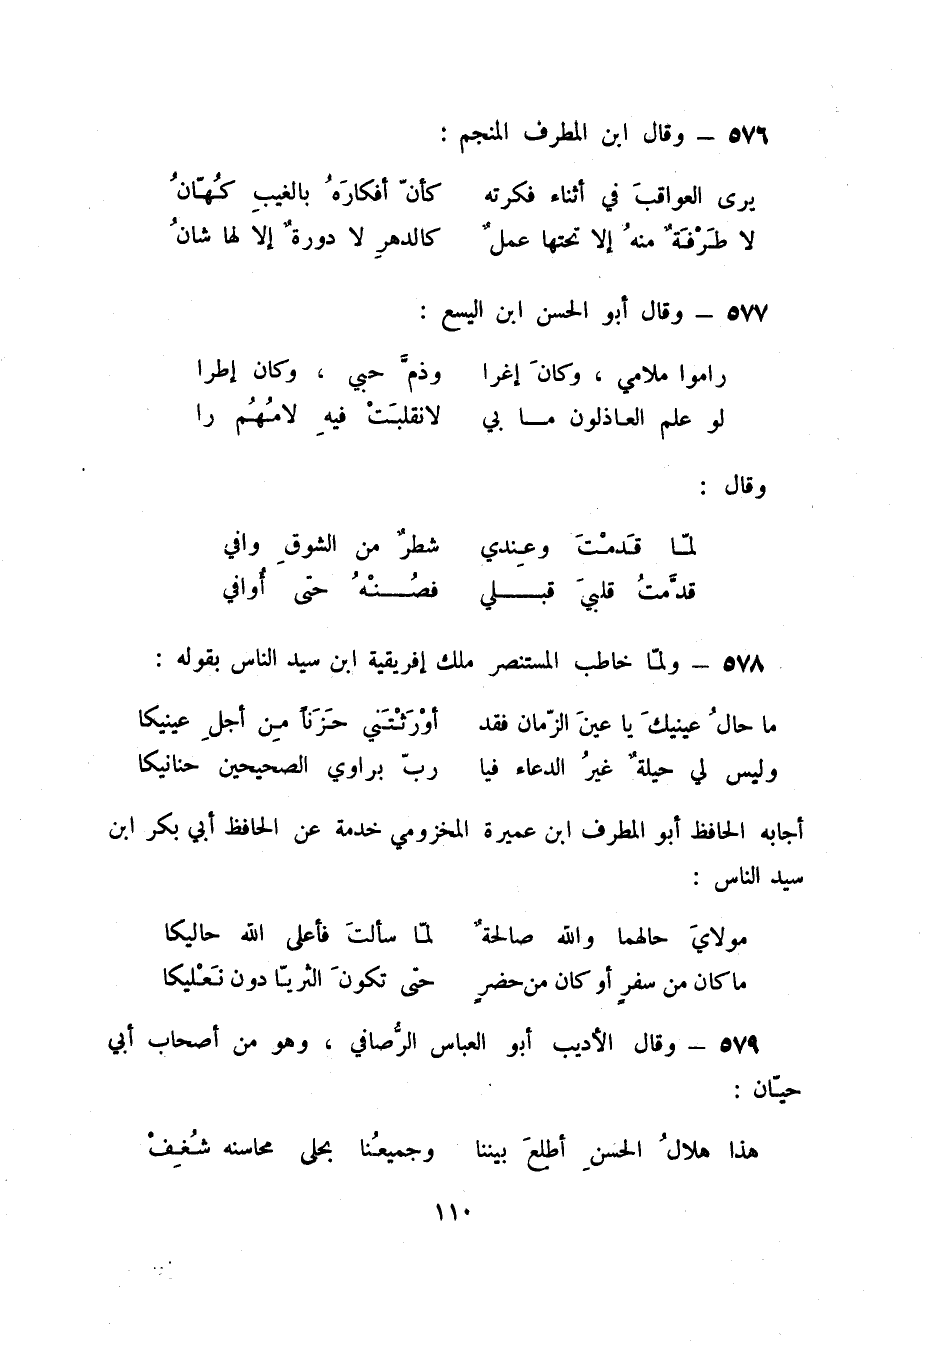 ٥٧٦ – وقال ابن المطرف المنجم :
يرى العواقبَ في أثناء فكرته كأنّ أفكارَهُ بالغيبِ كُهّانُ
لا طَرْفَةٌ منهُ إلا تحتها عملٌ كالدهرِ لا دورةٌ إلا لها شانُ
٥٧٧ – وقال أبو الحسن ابن اليسع :
راموا ملامي ، وكانَ إغرا وذمَّ حبي ، وكان إطرا
لو علم العاذلون مـا بي لانقلبَتْ فيهِ لامُهُم را
وقال :
لمّا قَدمْتَ وعِندي شطرٌ من الشوقِ وافي
قدَّمتُ قلبيَ قبـلي فصُـنْهُ حتّى أُوافي
٥٧٨ – ولمّا خاطب المستنصر ملك إفريقية ابن سيد الناس بقوله :
ما حالُ عينيكَ يا عينَ الزّمان فقد أوْرَثْتَني حَزَناً مِن أجلِ عينيكا
وليس لي حيلةٌ غيرُ الدعاء فيا ربّ براوي الصحيحين حنانيكا
أجابه الحافظ أبو المطرف ابن عميرة المخزومي خدمة عن الحافظ أبي بكر ابن
سيد الناس :
مولايَ حالهما والله صالحةٌ لمّا سألتَ فأعلى الله حاليكا
ما كان من سفرٍ أو كان من حضرٍ حتّى تكونَ الثريّا دون نَعْليكا
٥٧٩ – وقال الأديب أبو العباس الرُّصافي ، وهو من أصحاب أبي
حيّان :
هذا هلالُ الحسنِ أطلعَ بيننا وجميعُنا بحلى محاسنه شُغِفْ
١١٠